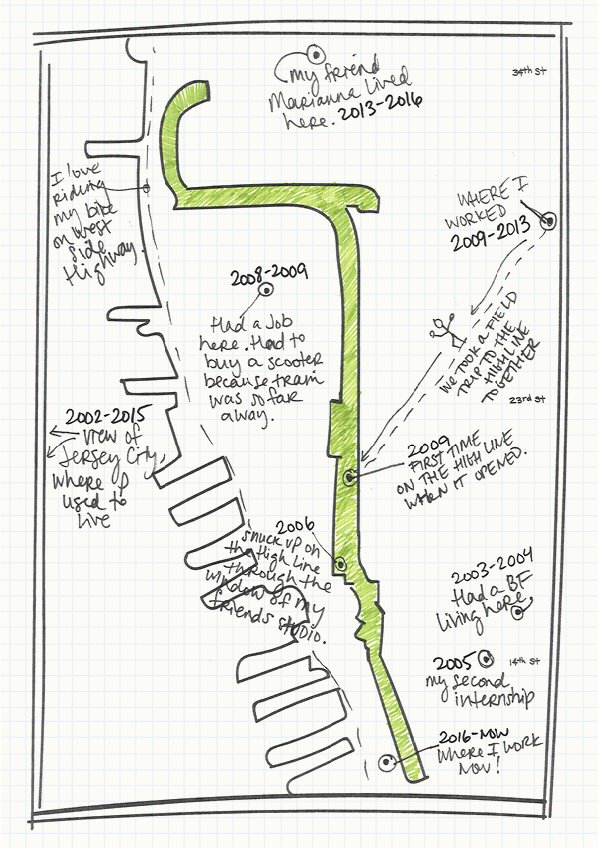 34th St
my friend
Marianna lived
here. 2013-2016
I love
riding
my bike
on west
side
Highway.
WHERE I
WORKED
2009-2013
2008-2009
Had a Job
here. Had to
buy a scooter
because train
was so far
away.
WE TOOK A FIELD
TRIP TO THE
HIGHLINE
TOGETHER
23rd St
2002-2015
view of
Jersey City,
where I
used to
live
2009
FIRST TIME
ON THE HIGH LINE
WHEN IT OPENED.
2006
snuck up on
the High Line
through the
window of my
friends studio.
2003-2004
Had a BF
living here,
2005
14th St
my second
internship
2016-NOW
where I work
Now!